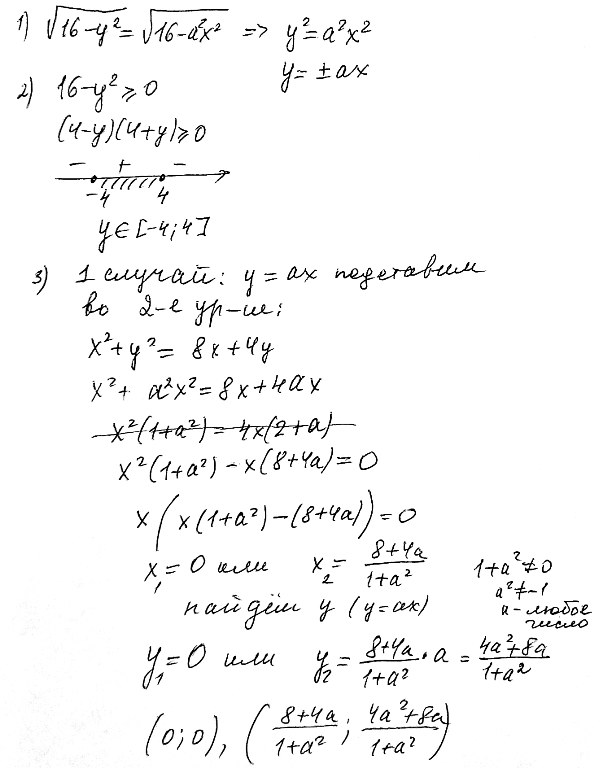 1) √16-y² = √16-a²x² => y² = a²x²
y = ±ax
2) 16-y² ≥ 0
(4-y)(4+y) ≥ 0
- + -
-4 4
y ∈ [-4; 4]
3) 1 случай: y = ax подставим
во 2-е ур-ие:
x² + y² = 8x + 4y
x² + a²x² = 8x + 4ax
x²(1+a²) = 4x(2+a)
x²(1+a²) - x(8+4a) = 0
x(x(1+a²) - (8+4a)) = 0
x₁ = 0 или x₂ = (8+4a)/(1+a²) 1+a² ≠ 0
a² ≠ -1
найдём y (y = ax) a - любое
число
y₁ = 0 или y₂ = (8+4a)/(1+a²) · a = (4a²+8a)/(1+a²)
(0; 0), ((8+4a)/(1+a²); (4a²+8a)/(1+a²))